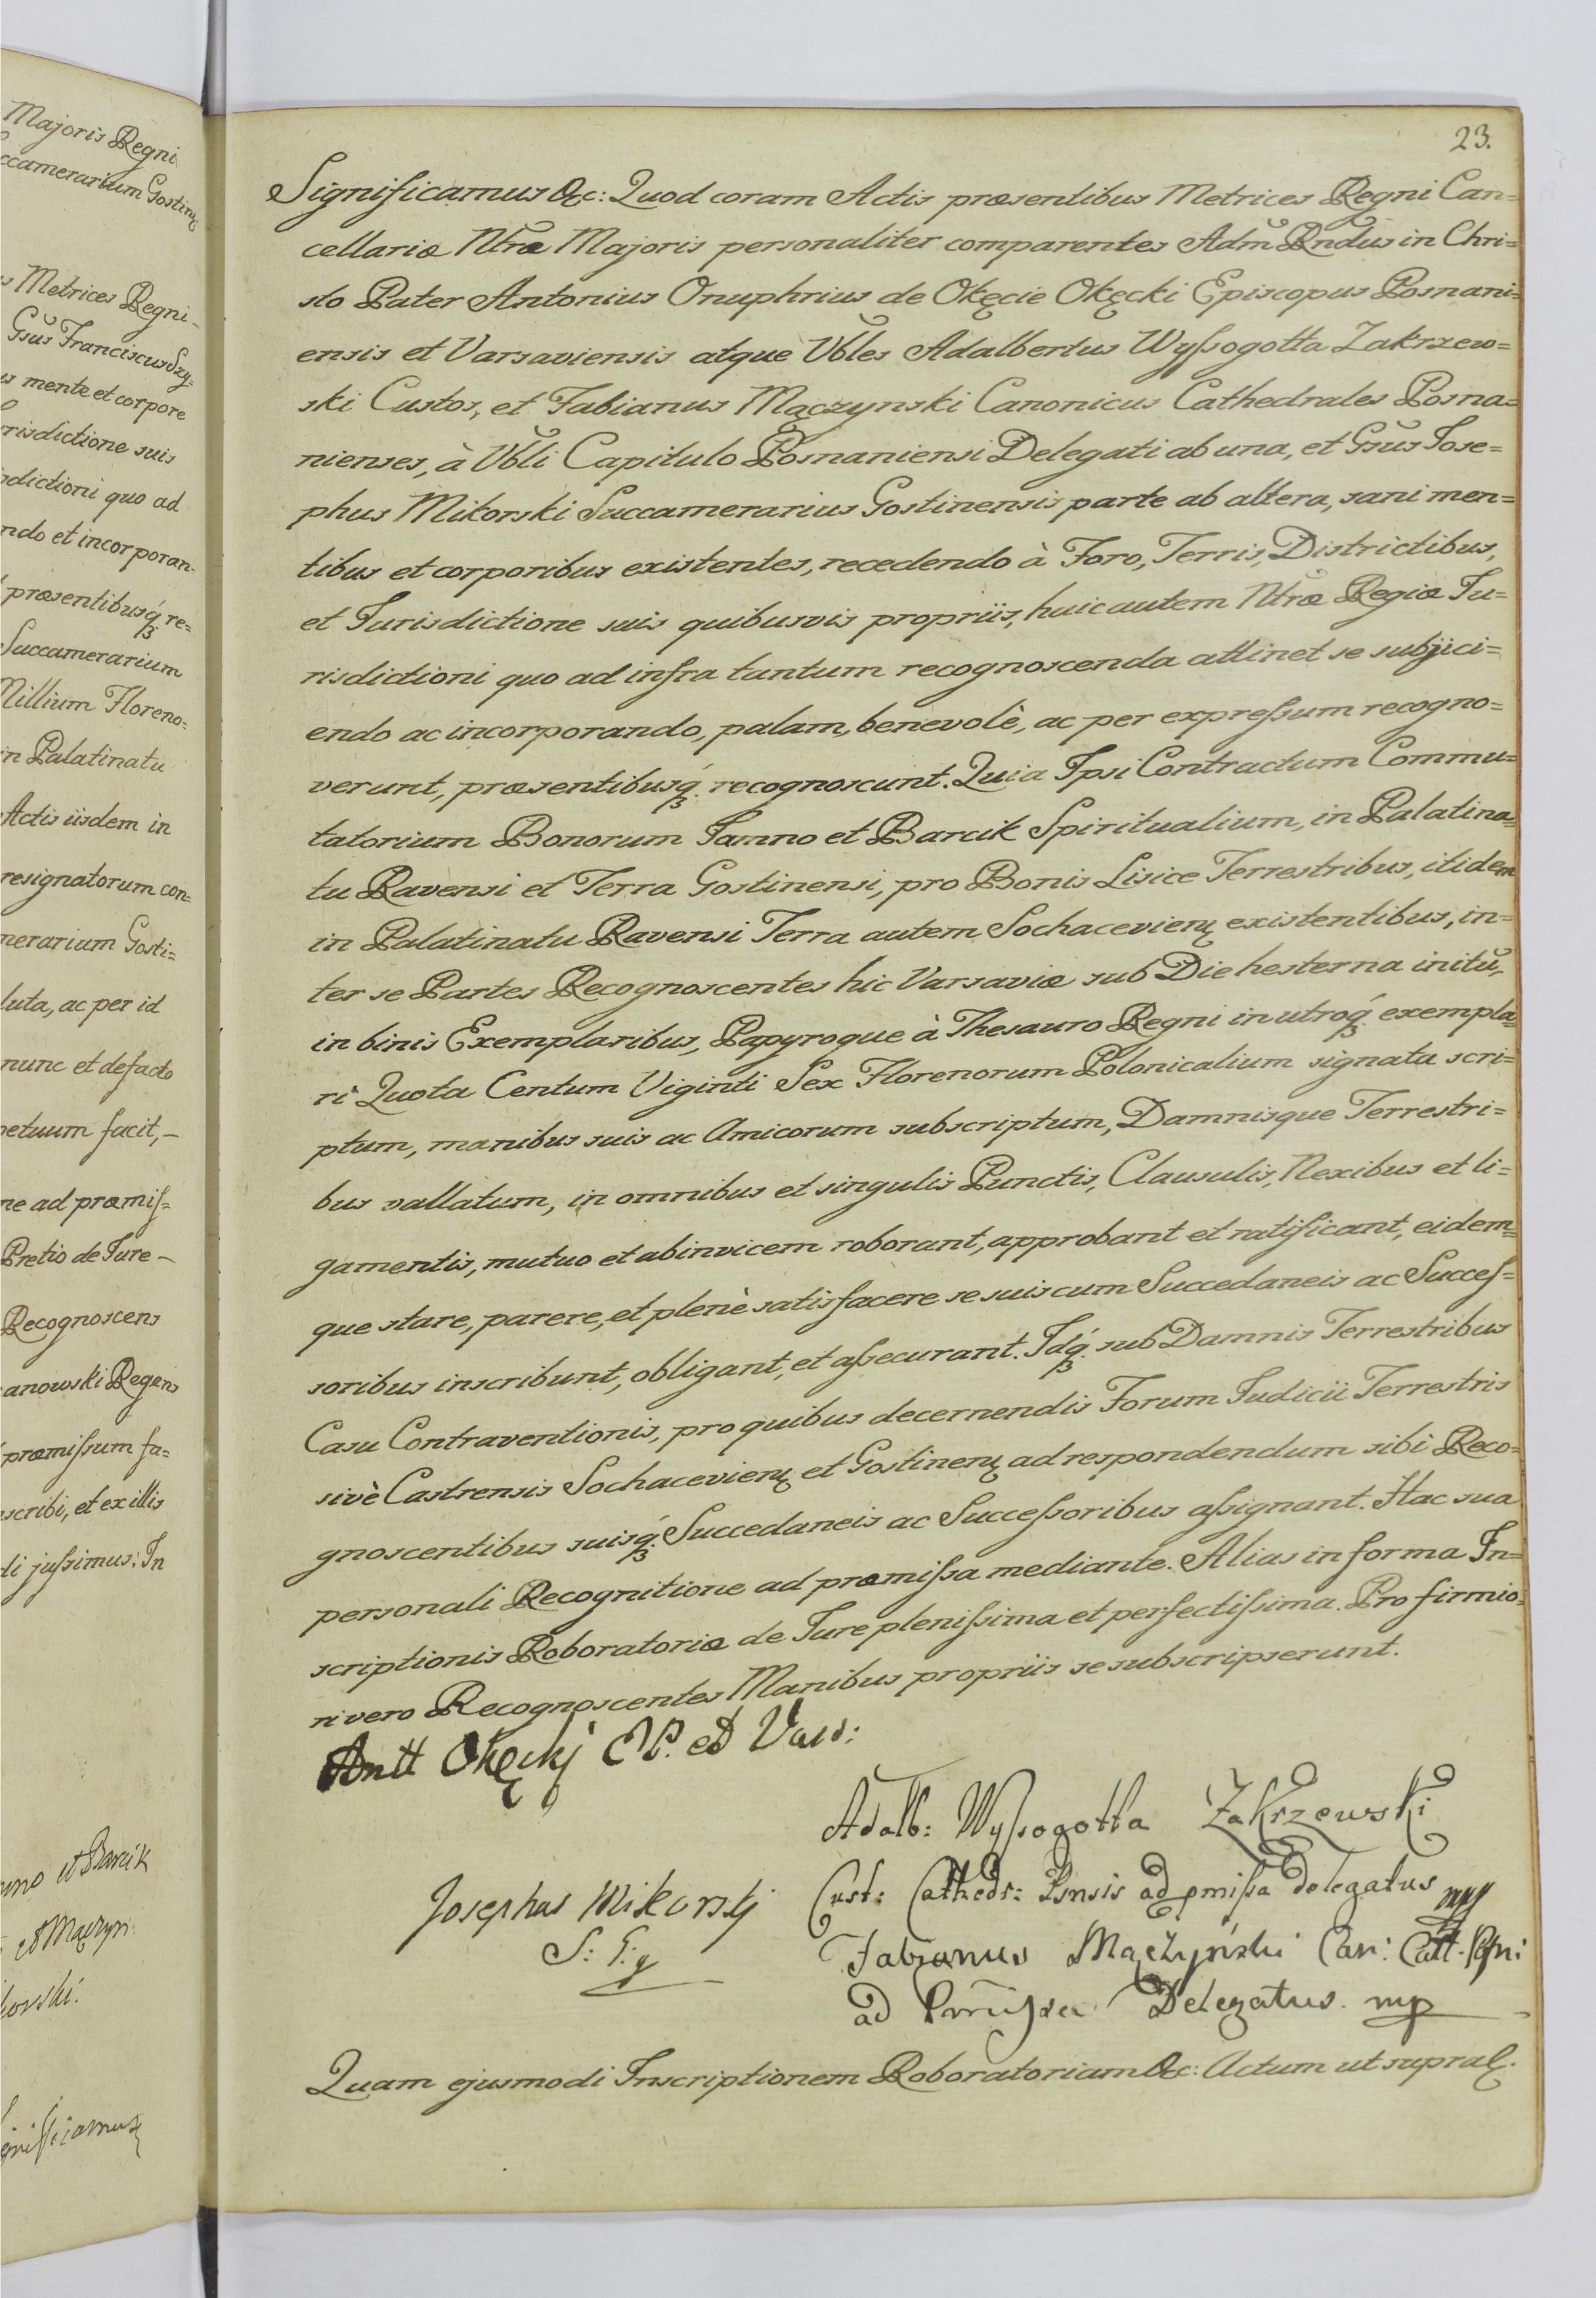 Majoris Regni
ccamerarium Gostinȩ
s Metrices Regni_
Gsus Franciscus Szy=
us mente et corpore
risdictione suis
sdictioni quo ad
ndo et incorporan=
præsentibusq́ꝫ re=
Succamerarium
Millium Floreno=
in Palatinatu
Actis iisdem in
resignatorum con=
nerarium Gosti=
luta, ac per id
nunc et defacto
petuum facit,_
ne ad præmiſ=
Pretio de Jure_
Recognoscens
anowski Regens
præmiſsum fa=
scribi, et ex illis
di juſsimus: In
et Barcik
et Mączyn:
korski.
gnificamus
23.
Significamus &c: Quod coram Actis præsentibus Metrices Regni Can=
cellariæ Ntræ Majoris personaliter comparentes Adm̃ Rndus in Chri=
sto Pater Antonius Onuphrius de Okęcie Okęcki Episcopus Posnani=
ensis et Varsaviensis atque Vbles Adalbertus Wyſsogotta Zakrzew=
ski Custos, et Fabianus Mączynski Canonicus Cathedrales Posna=
nienses, à Vbli Capitulo Posnaniensi Delegati ab una, et Gsus Jose=
phus Mikorski Succamerarius Gostinensis parte ab altera, sani men=
tibus et corporibus existentes, recedendo à Foro, Terris, Districtibus,
et Jurisdictione suis quibusvis propriis, huic autem Ntræ Regiæ Ju=
risdictioni quo ad infra tantum recognoscenda attinet se subjici=
endo ac incorporando, palam, benevolè, ac per expreſsum recogno=
verunt, præsentibusq́ꝫ. recognoscunt. Quia Ipsi Contractum Commu=
tatorium Bonorum Jamno et Barcik Spiritualium, in Palatina=
tu Ravensi et Terra Gostinensi, pro Bonis Lisice Terrestribus, itidem
in Palatinatu Ravensi Terra autem Sochacevienȩ existentibus, in=
ter se Partes Recognoscentes hic Varsaviæ sub Die hesterna initũ,
in binis Exemplaribus, Papyroque à Thesauro Regni in utroq́ꝫ exempla=
ri Quota Centum Viginti Sex Florenorum Polonicalium signata scri=
ptum, manibus suis ac Amicorum subscriptum, Damnisque Terrestri=
bus vallatum, in omnibus et singulis Punctis, Clausulis, Nexibus et li=
gamentis, mutuo et ab invicem roborant, approbant et ratificant, eidem=
que stare, parere, et plenè satisfacere se suis cum Succedaneis ac Succeſ=
soribus inscribunt, obligant, et aſsecurant. Idq́ꝫ. sub Damnis Terrestribus
Casu Contraventionis, pro quibus decernendis Forum Judicii Terrestris
sivè Castrensis Sochacevienȩ et Gostinenȩ ad respondendum sibi Reco=
gnoscentibus suisq́ꝫ. Succedaneis ac Succeſsoribus aſsignant. Hac sua
personali Recognitione ad præmiſsa mediante. Alias in forma In=
scriptionis Roboratoriæ de Jure pleniſsima et perfectiſsima. Pro firmio=
ri vero Recognoscentes Manibus propriis se subscripserunt.
Antt Okęckj E P. et Vars:
Adalb: Wyſsogotta Zakrzewski
Cust: Cathedr: Psnsis ad pmiſsa delegatus mp
Josephus Mikorskj
S: G:
Fabianus Mączyński Can: Catt. Psni
ad Pmiſsa Delegatus. mp
Quam ejusmodi Inscriptionem Roboratoriam &c: Actum ut supra